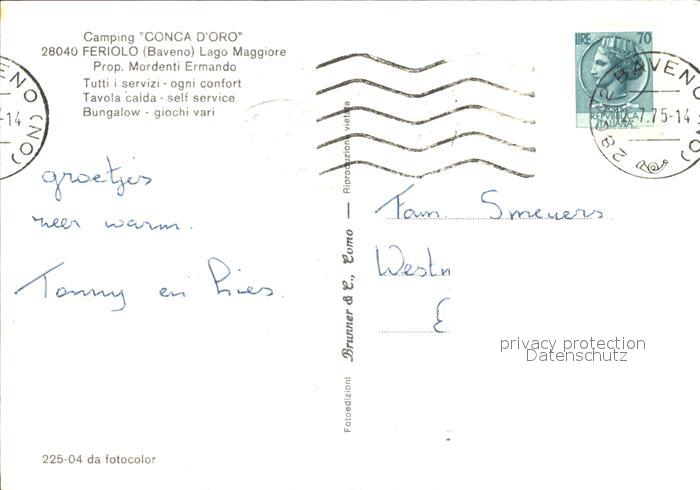 Camping "CONCA D'ORO"
28040 FERIOLO (Baveno) Lago Maggiore
Prop. Mordenti Ermando
Tutti i servizi - ogni confort
Tavola calda - self service
Bungalow - giochi vari
groetjes
zeer warm.
Tonny en Lies.
225-04 da fotocolor
Fotoedizioni Brunner & C., Como — Riproduzione vietata
LIRE 70
REPVBBLICA
ITALIANA
BAVENO
.7.75-14
28042
VENO (NO)
-14
Fam. Smeuers
Westn
E
privacy protection
Datenschutz